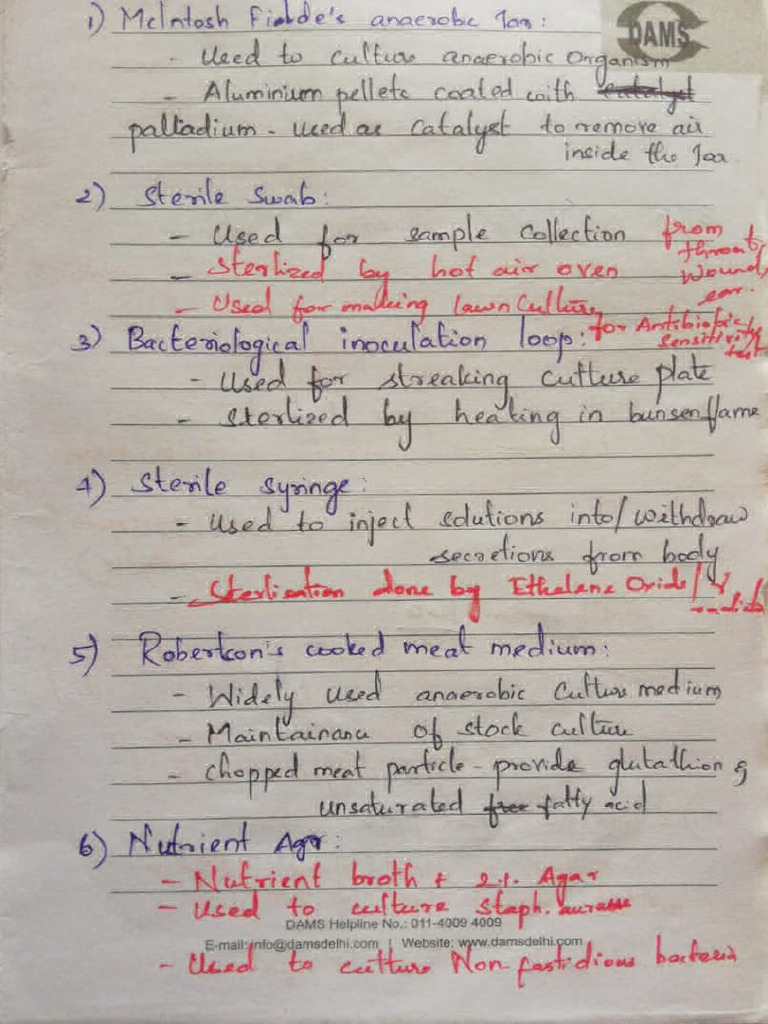 1) McIntosh Fielde's anaerobic Jar:
DAMS
- Used to culture anaerobic Organism
- Aluminium pellets coated with catalyst
palladium - used as catalyst to remove air
inside the Jar
2) Sterile Swab:
- Used for sample collection from
throat,
- Sterlized by hot air oven wound,
ear.
- Used for making lawn culture
for Antibiotic
sensitivity
test
3) Bacteriological inoculation loop:
- Used for streaking culture plate
- Sterlized by heating in bunsenflame
4) Sterile syringe:
- Used to inject solutions into/withdraw
secretions from body
- Sterlisation done by Ethelane Oxide/
5) Robertson's cooked meat medium:
- Widely used anaerobic Culture medium
- Maintainance of stock culture
- chopped meat particle - provide glutathion &
unsaturated free fatty acid
6) Nutrient Agar:
- Nutrient broth + 2% Agar
- Used to culture Staph. aureus
DAMS Helpline No.: 011-4009 4009
E-mail: info@damsdelhi.com | Website: www.damsdelhi.com
- Used to culture Non fastidious bacteria